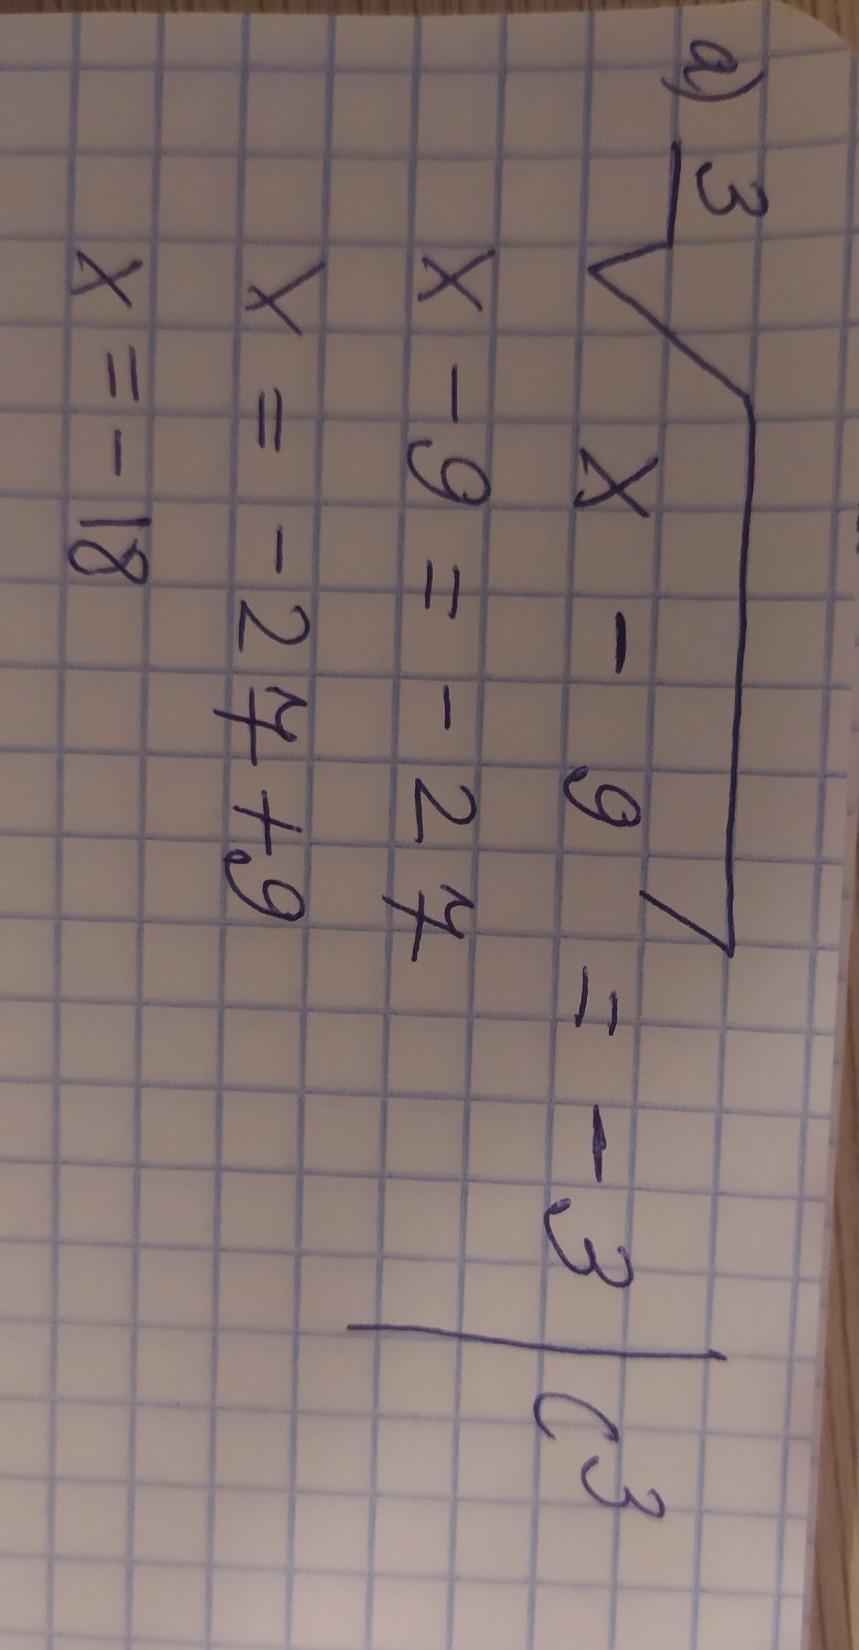 а) ³√x - 9 = - 3 | ( ³
x - 9 = - 27
x = - 27 + 9
x = - 18